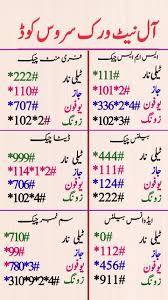 آل نیٹ ورک سروس کوڈ
ایس ایم ایس چیک
ٹیلی نار *111#
جاز *101*1#
یوفون *336*2*4#
زونگ *102*3#
فری منٹ چیک
ٹیلی نار *222#
جاز *110#
یوفون *707#
زونگ *102*2#
بیلنس چیک
ٹیلی نار *444#
جاز *111#
یوفون *124#
زونگ *222#
ڈیٹا چیک
ٹیلی نار *999#
جاز *114*1*2#
یوفون *706#
زونگ *102*4#
ایڈوانس بیلنس
ٹیلی نار *0#
جاز *112#
یوفون *456#
زونگ *911#
سم نمبر چیک
ٹیلی نار *710#
جاز *99#
یوفون *780*3#
زونگ *310*9*2*4#